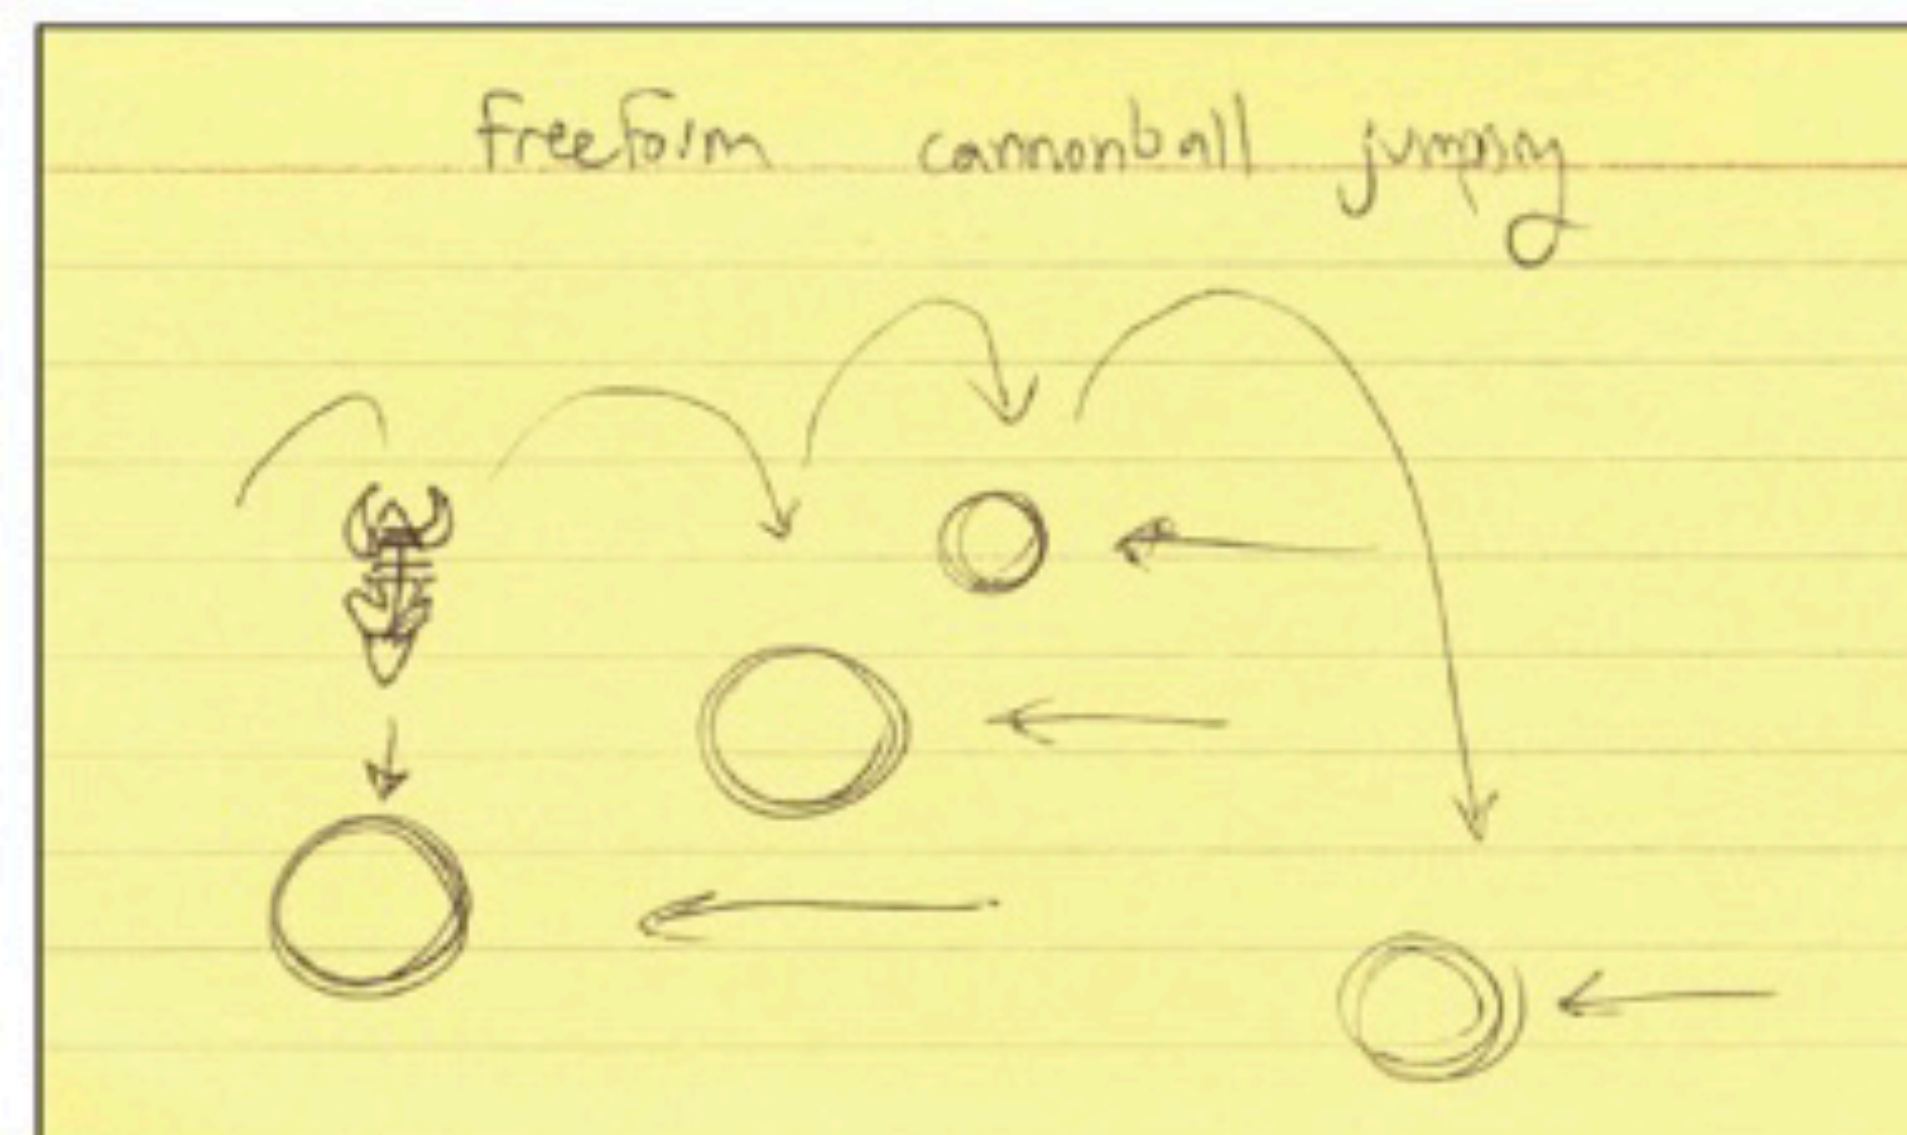 freeform cannonball jumping